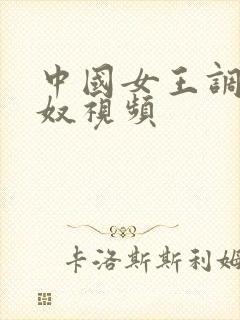 中國女王調
奴視頻
卡洛斯斯利姆